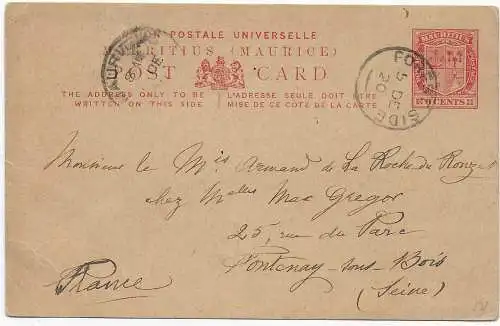 POSTALE UNIVERSELLE
MAURITIUS (MAURICE)
POST CARD
THE ADDRESS ONLY TO BE WRITTEN ON THIS SIDE
L'ADRESSE SEULE DOIT ÊTRE MISE DE CE COTÉ DE LA CARTE
MAURITIUS
6 CENTS 6
5 DE
20
SIDE
DE
Monsieur le Mis Armand de La Roche du Ronzet
chez Melles Mac Gregor
25, rue du Parc
Fontenay-sous-Bois
(Seine)
France